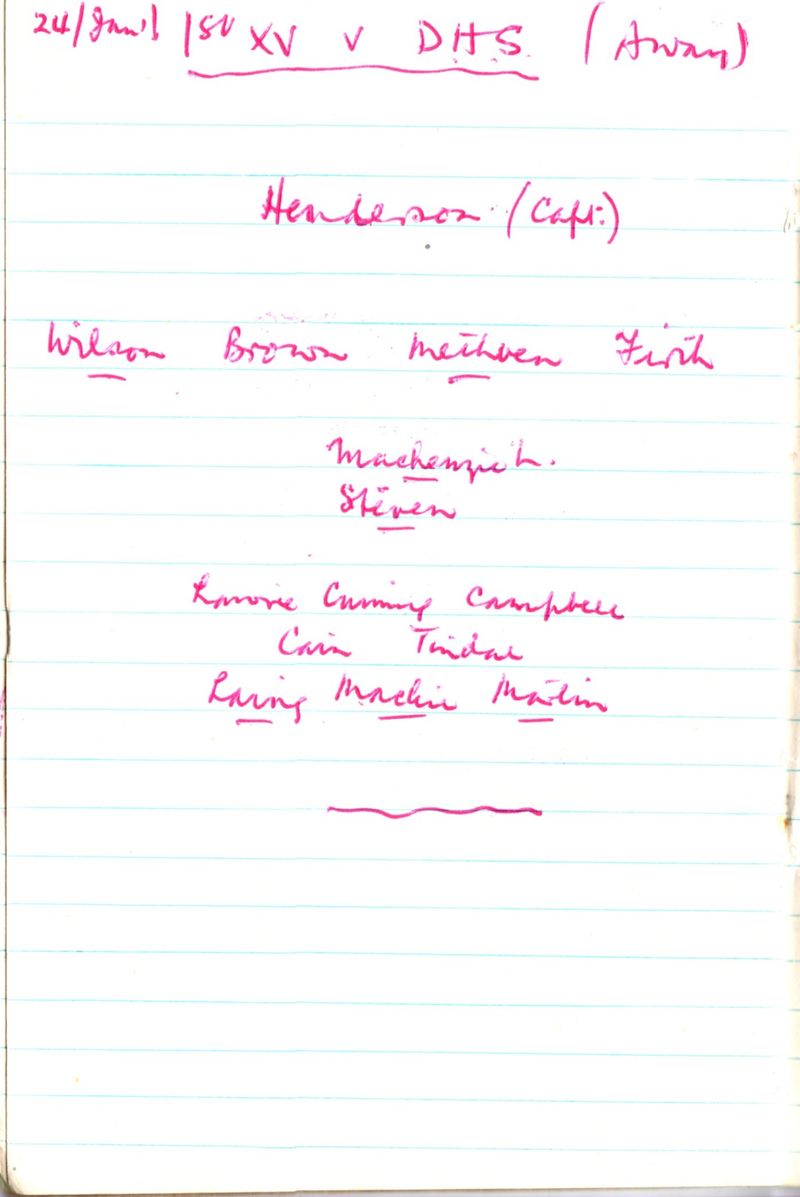 24/Jan'/ 1st XV v D.H.S. (Away)
Henderson (Capt:)
Wilson Brown Methven Firth
Mackenzie L.
Steven
Lawrie Cuming Campbell
Cain Tindal
Laing Mackie Martin